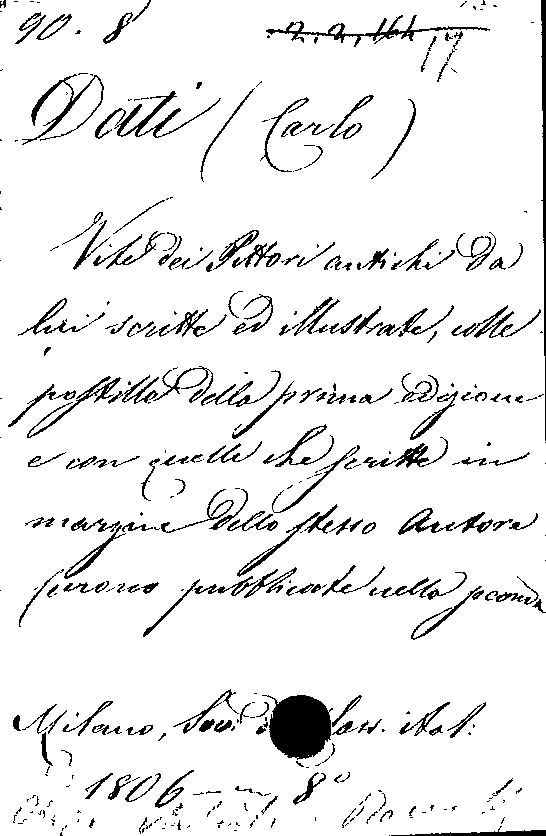 90. 8 2, 2, 164 17
Dati (Carlo)
Vite dei Pittori antichi da
lui scritte ed illustrate, colle
postille della prima edizione
e con quelle che scritte in
margine dello stesso Autore
furono pubblicate nella seconda
Milano, Soc. class. ital:
1806 — in 8°